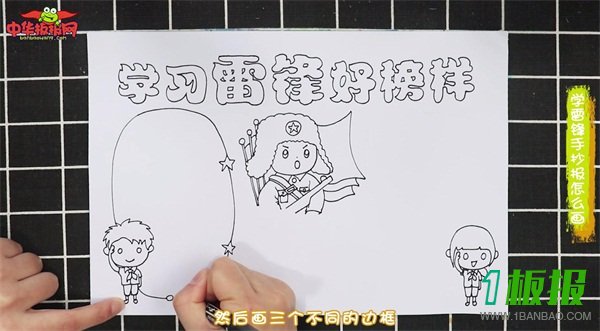 中华板报网
banbaowang.com
学习雷锋好榜样
学雷锋手抄报怎么画
1板报
WWW.1BANBAO.COM
然后画三个不同的边框